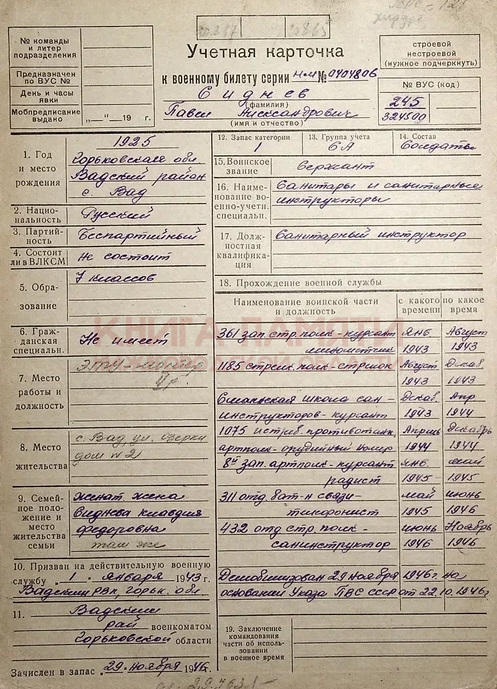 Учетная карточка
к военному билету серии НМ № 0404806
Сиднев
(фамилия)
Павел Александрович
(имя и отчество)
№ команды
и литер
подразделения
Предназначен
по ВУС №
День и часы
явки
Мобпредписание
выдано „ “ 19 г.
строевой
нестроевой
(нужное подчеркнуть)
№ ВУС (код)
245
324500
1. Год
и место
рождения
1925
Горьковская обл.
Вадский район
с. Вад
2. Нацио-
нальность
Русский
3. Партий-
ность
Беспартийный
4. Состоит
ли в ВЛКСМ
Не состоит
5. Обра-
зование
7 классов
6. Граж-
данская
специальн.
Не имеет
7. Место
работы и
должность
8. Место
жительства
с. Вад, ул.
дом № 2
9. Семейное поло-
жение и
место
жительства
семьи
Женат жена
Сиднева Клавдия
Федоровна
там же
10. Призван на действительную военную
службу 1 января 1943 г.
Вадским РВК, Горьк. обл
11. Вадским
рай военкоматом
Горьковской области
Зачислен в запас 29 ноября 1946 г.
12. Запас категории
1
13. Группа учета
СА
14. Состав
Солдаты
15. Воинское
звание
Сержант
16. Наимено-
вание во-
енно-учетн.
специальн.
Санитары и санитарные
инструкторы
17. Долж-
ностная
квалифика-
ция
Санитарный инструктор
18. Прохождение военной службы
Наименование воинской части
и должность
с какого
времени
по какое
время
361 зап. стр. полк - курсант Янв. Август
1943 1943
1185 стрелк. полк - стрелок Август Декаб
1943 1943
школа сан- Декаб. Апр
инструкторов - курсант 1943 1944
1075 истреб. противотанк. Апрель Декабрь
артполк - орудийный номер 1944 1944
8й зап. артполк - курсант янв. май
радист 1945 1945
311 отд. бат-н связи май июнь
телефонист 1945 1946
432 отд. стр. полк - июнь Ноябрь
санинструктор 1946 1946
Демобилизован 29 ноября 1946 г. на
основании Указа ПВС СССР от 22.10.1946 г.
19. Заключение
командования
части об исполь-
зовании
в военное время
КНИГА ПАМЯТИ